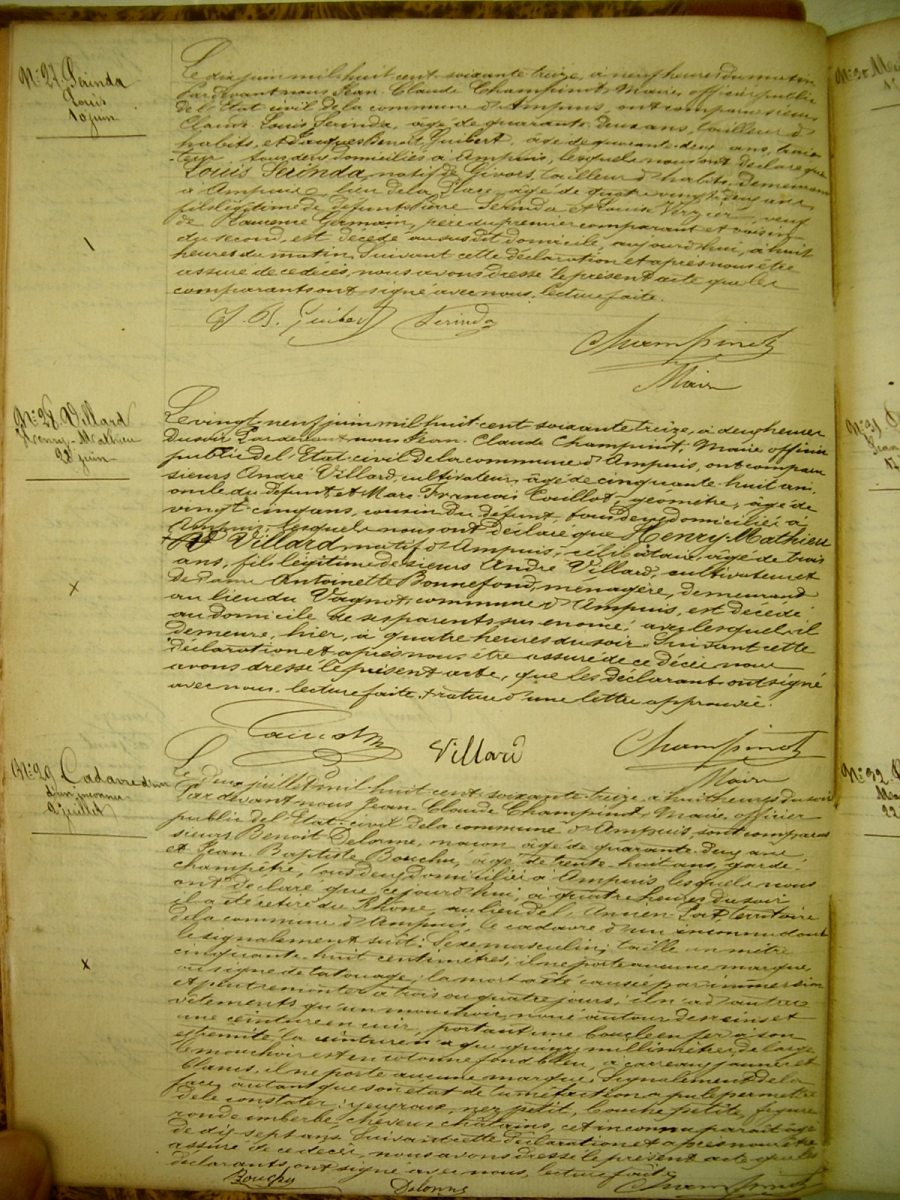 N° 27. Serinda
Louis
10 juin
Le dix juin mil huit cent soixante treize, à neuf heures du matin
Pardevant nous Jean-Claude Champinot, Maire, officier public
de l'Etat civil de la commune d'Ampuis, ont comparu sieurs
Claude Louis Serinda, âgé de quarante deux ans, tailleur d'
habits, et Jacques Benoît Guibert, âgé de quarante deux ans,
tous deux domiciliés à Ampuis, lesquels nous ont déclaré que
Louis Serinda, natif de Givors, tailleur d'habits, demeurant
à Ampuis, lieu de la Place, âgé de quatre vingt deux ans,
fils légitime de défunts Pierre Serinda et Louise, veuf
de Germain, père du premier comparant et voisin
du second, est décédé au susdit domicile, aujourd'hui, à huit
heures du matin. Suivant cette déclaration et après nous être
assuré de ce décès, nous avons dressé le présent acte que les
comparants ont signé avec nous, lecture faite.
J. B. Guibert Serinda
Champinot
Maire
N° 28. Villard
Henry-Mathieu
28 juin
Le vingt neuf juin mil huit cent soixante treize, à deux heures
du soir Pardevant nous Jean-Claude Champinot, Maire officier
public de l'Etat-civil de la commune d'Ampuis, ont comparu
sieurs André Villard, cultivateur, âgé de cinquante-huit ans,
oncle du défunt et Marc-François, géomètre, âgé de
vingt cinq ans, cousin du défunt, tous deux domiciliés à
Ampuis, lesquels nous ont déclaré que Henry-Mathieu
Villard, natif d'Ampuis, célibataire, âgé de trois
ans, fils légitime de sieurs André Villard, cultivateur et
de Dame Antoinette Bonnefond, ménagère, demeurant
au lieu du Vagnot, commune d'Ampuis, est décédé
au domicile de ses parents sus-nommé, avec lesquels il
demeure, hier, à quatre heures du soir. Suivant cette
déclaration et après nous être assuré de ce décès nous
avons dressé le présent acte, que les déclarants ont signé
avec nous. lecture faite. rature d'une lettre approuvée.
Villard
Champinot
Maire
N° 29. Cadavre d'un
d'un inconnu
2 juillet
Le deux juillet mil huit cent soixante treize, à huit heures du soir
Pardevant nous Jean-Claude Champinot, Maire, officier
public de l'Etat-civil de la commune d'Ampuis, sont comparus
sieurs Benoît Delorme, maçon âgé de quarante deux ans,
et Jean Baptiste Bouchu, âgé de trente-huit ans, garde
champêtre, tous deux domiciliés à Ampuis lesquels nous
ont déclaré que ce jourd'hui, à quatre heures du soir
il a été retiré du Rhône, au lieu de l', Territoire
de la commune d'Ampuis, le cadavre d'un inconnu dont
le signalement suit: Sexe masculin; taille un mètre
cinquante-huit centimètres; il ne porte aucune marque
ou signe de tatouage; la mort a été causée par immersion
et peut remonter à trois ou quatre jours; il n'a d'autres
vêtements qu'un mouchoir, noué autour des reins et
une ceinture en cuir, portant une boucle en fer à son
extrémité, la ceinture n'a que quinze millimètres de large
le mouchoir est en cotonne fond bleu, à carreaux jaunes et
blancs, il ne porte aucune marque; Signalement de la
face, autant que son état de tuméfaction a pu le permettre
de le constater: yeux roux, nez petit, bouche petite, figure
ronde imberbe, cheveux châtains, cet inconnu paraît âgé
de dix sept ans. Suivant cette déclaration et après nous être
assuré de ce décès, nous avons dressé le présent acte que les
déclarants ont signé avec nous, lecture faite.
Bouchu Delorme Champinot